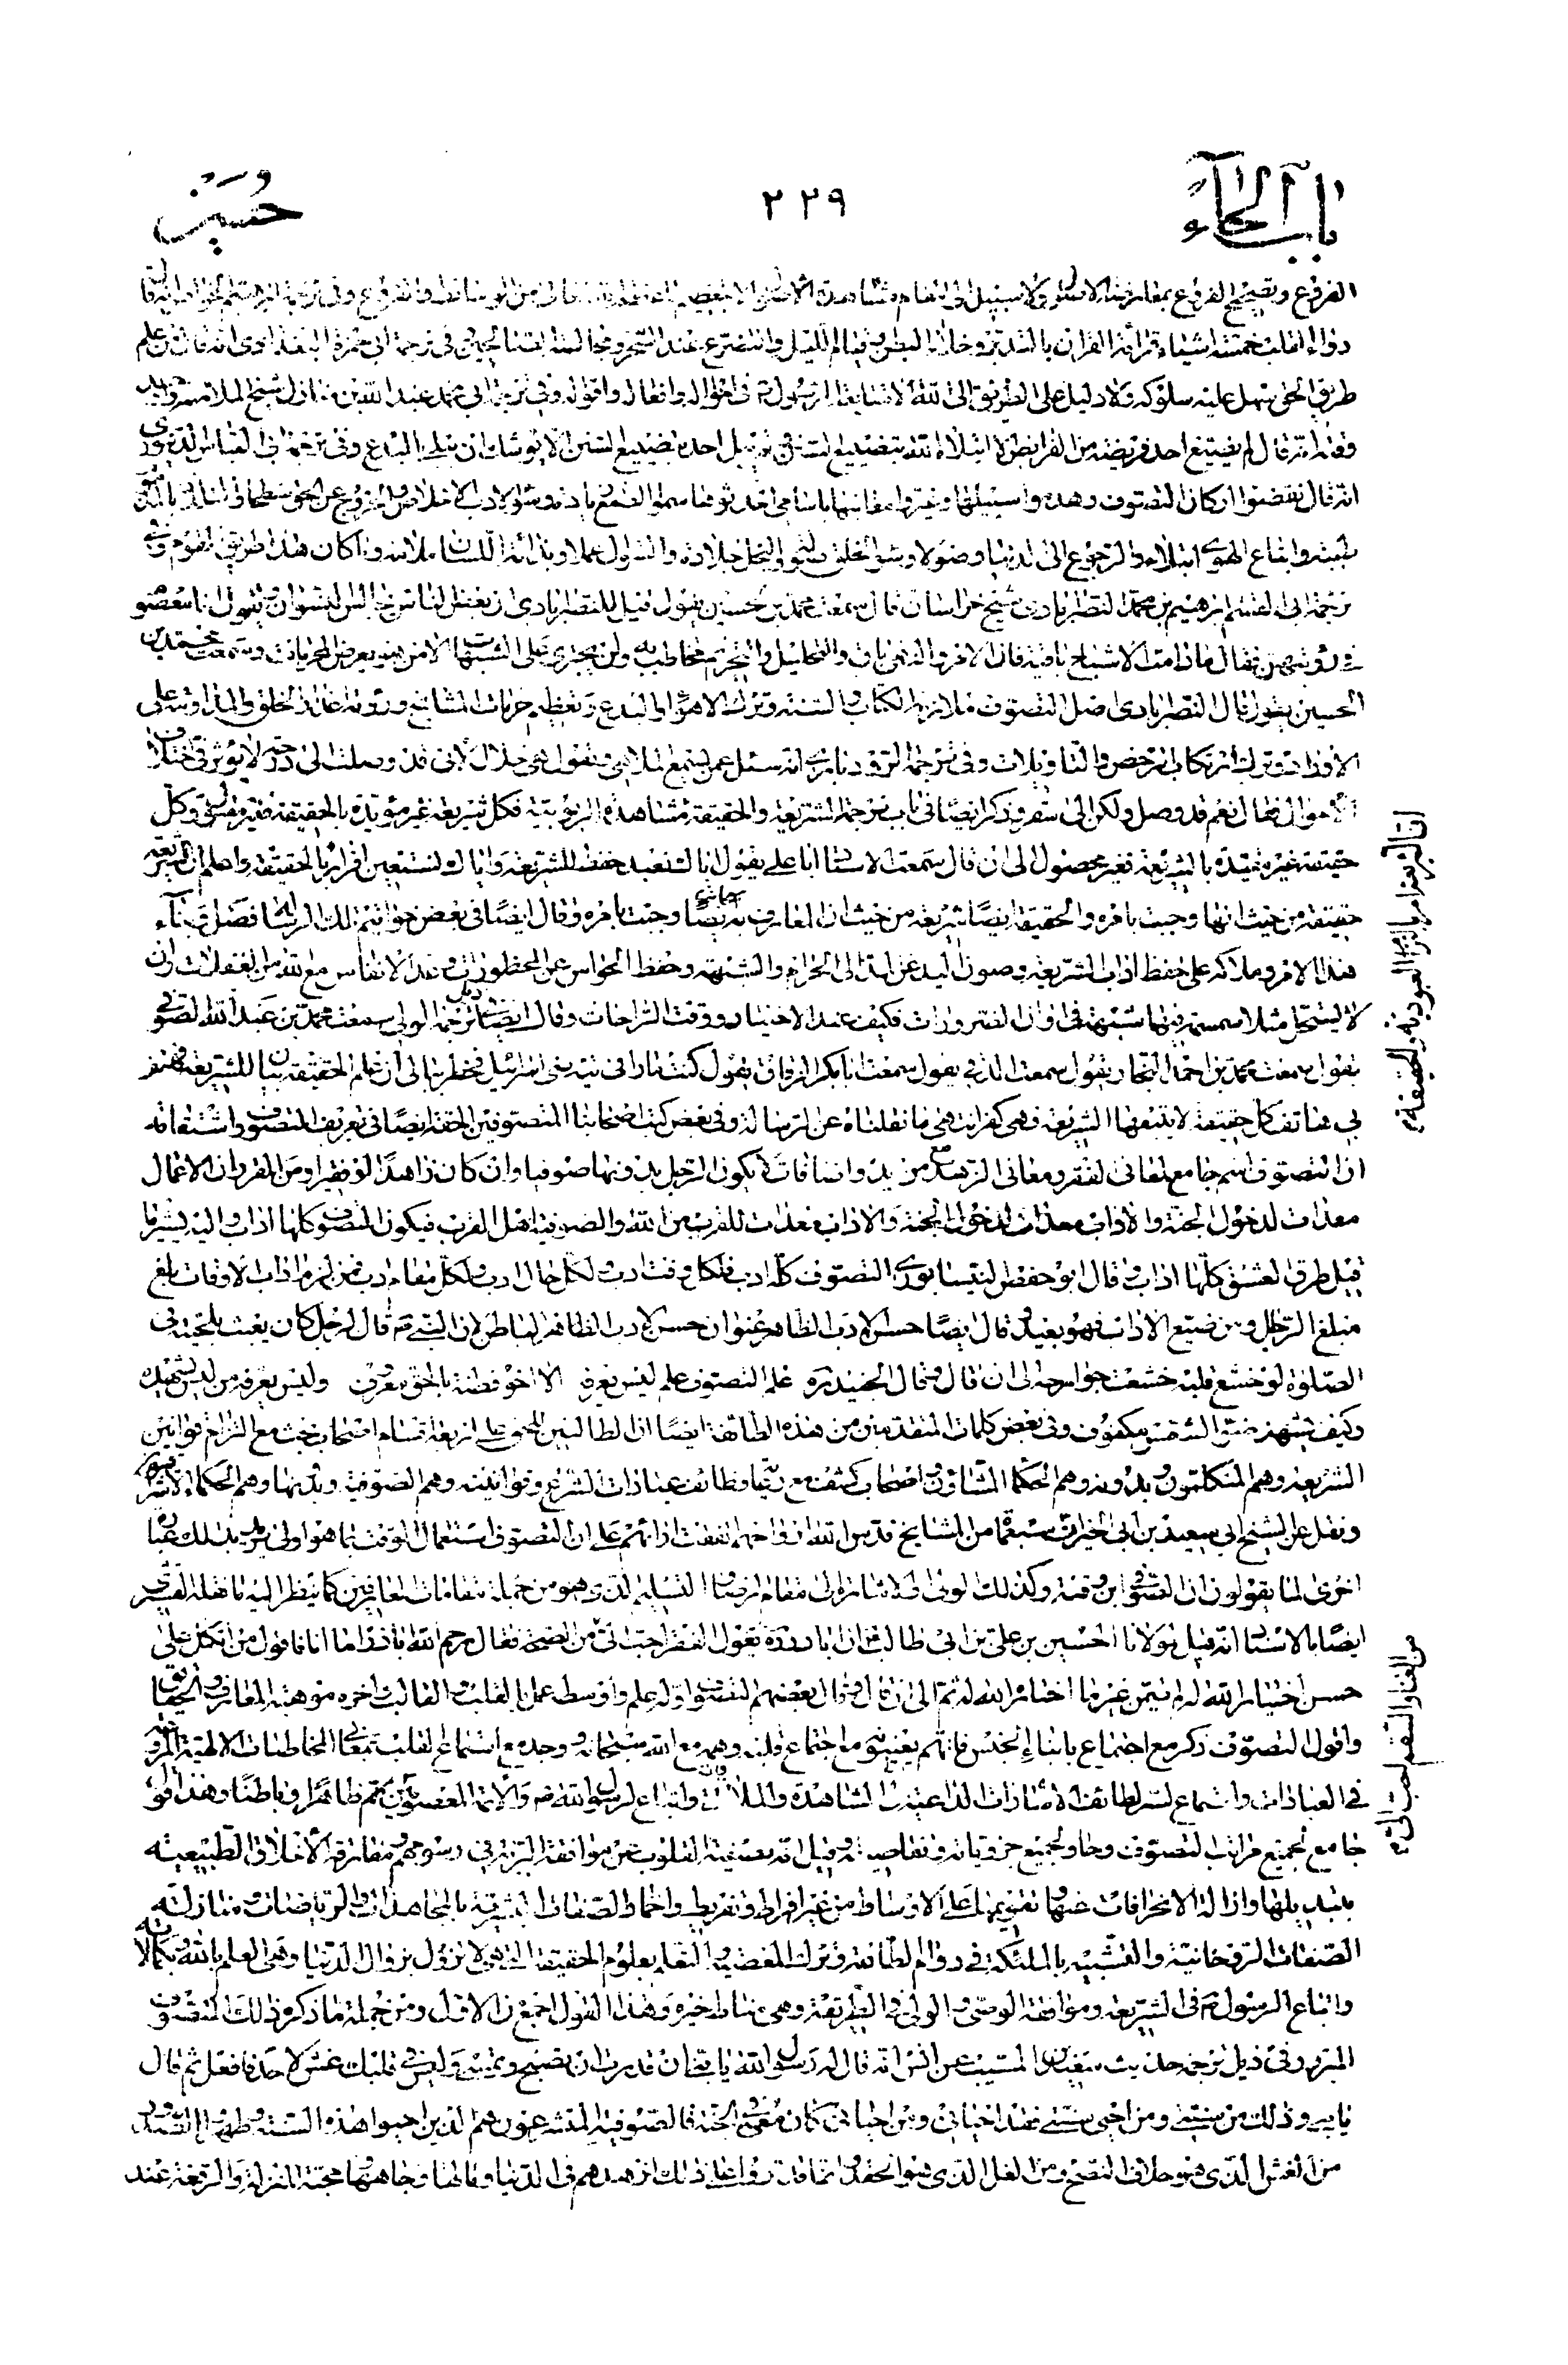 باب الحاء
٢٢٩
حسين
الفروع وتصحيح الفروع بمعارضة الاصول ولا سبيل الى مقام مشاهدة الاصول الا بتعظيم ما عظم الله من الوسائط والفروع وفى ترجمة ابراهيم الخواص انه قال
دواء القلب خمسة اشياء قرائة القران بالتدبر وخلاء البطن وقيام الليل والتضرع عند السحر ومجالسة الصالحين وفى ترجمة ابى حمزة البغدادى انه قال من علم
طريق الحق سهل عليه سلوكه ولا دليل على الطريق الى الله الا متابعة الرسول ص فى احواله وافعاله واقواله وفى ترجمة ابى محمد عبد الله بن منازل شيخ الملامتية
وقته انه قال لم يضيع احد فريضة من الفرايض الا ابتلاه الله بتضييع السنن ولم يبل احد بتضييع السنن الا يوشك ان يبلى بالبدع وفى ترجمة ابى العباس الدينورى
انه قال نقضوا اركان التصوف وهدموا سبيلها وغيروا معانيها باسامى احدثوها سموا الطمع زيادة وسوء الادب اخلاصا والخروج عن الحق شطحا والتلذذ بالمذموم
طيبة واتباع الهوى ابتلاء والرجوع الى الدنيا وصولا وسوء الخلق صولة والبخل جلادة والسؤال عملا وبذائة اللسان ملامة وما كان هذا طريق القوم وفى
ترجمة ابى القسم ابرهيم بن محمد النصرابادى شيخ خراسان قال سمعت محمد بن حسين يقول قيل للنصرابادى ان بعض الناس يجالس النسوان ويقول انا معصوم
فى رؤيتهن فقال ما دامت الاشباح باقية فان الامر والنهى باق والتحليل والتحريم مخاطب به ولن يجترى على الشبهات الا من هو يعرض للمحرمات وسمعت محمد بن
الحسين يقول قال النصرابادى اصل التصوف ملازمة الكتاب والسنة وترك الاهواء والبدع وتعظيم حرمات المشايخ ورؤية اعذار الخلق والمداومة على
الاوراد وترك ارتكاب الرخص والتاويلات وفى ترجمة الرودبارى انه سئل عمن يسمع الملاهى ويقول هى حلال لانى قد وصلت الى درجة لا يؤثر فى اختلاف
الاحوال فقال نعم قد وصل ولكن الى سقر وذكر ايضا فى باب ترجمة الشريعة والحقيقة مشاهدة الربوبية فكل شريعة غير مؤيدة بالحقيقة فغير مقبول وكل
حقيقة غير مقيدة بالشريعة فغير محصول الى ان قال سمعت الاستاد ابا على يقول اياك نعبد حفظ للشريعة واياك نستعين اقرار بالحقيقة واعلم ان الشريعة
حقيقة من حيث انها وجبت بامره والحقيقة ايضا شريعة من حيث ان المعارف به سبحانه ايضا وجبت بامره وقال ايضا فى بعض خواتيم تلك الرسالة فصل بناء
هذا الامر وملاكه على حفظ اداب الشريعة وصون اليد عن المد الى الحرام والشبهة وحفظ الحواس عن المحظورات وعد الانفاس مع الله من الغفلات وان
لا يستحل مثلا سمسمة فيها شبهة فى اوان الضرورات فكيف عند الاختيار ووقت الراحات وقال ايضا فى ذيل ترجمة الولى سمعت محمد بن عبد الله الصوفى
يقول سمعت محمد بن احمد النجار يقول سمعت الدقى يقول سمعت ابا بكر الزقاق يقول كنت مارا فى تيه بنى اسرائيل فخطر ببالى ان علم الحقيقة مباين للشريعة فهتف
بى هاتف كل حقيقة لا يتبعها الشريعة فهى كفر انتهى ما نقلناه عن الرسالة وفى بعض كتب اصحابنا المتصوفين الحقة ايضا فى تعريف التصوف واشتقاقه
ان التصوف اسم جامع لمعانى الفقر ومعانى الزهد مع مزيد واضافات لا يكون الرجل بدونها صوفيا وان كان زاهدا او فقيرا ومن المقرر ان الاعمال
معدات لدخول الجنة والاداب معدات للقرب من الله والصوفية اهل القرب فيكون التصوف كلها اداب واليه يشير ما
قيل طرق العشق كلها اداب وقال ابو حفص النيسابورى التصوف كله ادب ولكل وقت ادب ولكل حال ادب ولكل مقام ادب فمن لزم اداب الاوقات بلغ
مبلغ الرجال ومن ضيع الاداب فهو بعيد وقال ايضا حسن الادب الظاهر عنوان حسن الادب الباطن لان النبى ص قال لرجل كان يعبث بلحيته فى
الصلوة لو خشع قلبه خشعت جوارحه الى ان قال وقال الجنيد ره علم التصوف علم ليس يعرفه الا اخو فطنة بالحق معروف وليس يعرفه من ليس يشهده
وكيف يشهد ضوء الشمس مكفوف وفى بعض كلمات المتقدمين من هذه الطائفة ايضا ان الطالبين للحق على اربعة اقسام اصحاب بحث مع التزام قوانين
الشريعة وهم المتكلمون وبدونه وهم الحكماء المشاؤن واصحاب كشف مع رعاية وظائف عبادات الشرع وقوانينه وهم الصوفية وبدونها وهم الحكماء الاشراقيون
ونقل عن الشيخ ابى سعيد بن ابى الخير ان سبعمائة من المشايخ قدس الله ارواحهم اتفقت اراؤهم على ان التصوف استعمال الوقت بما هو اولى به
اخرى لما يقولون ان الصوفى ابن وقته وكذلك
ايضا بالاسناد انه قيل لمولانا الحسين بن على بن ابى طالب ع ان ابا ذر ره يقول الفقر احب الى من الصحة فقال رحم الله ابا ذر اما انا فاقول من اتكل على
حسن اختيار الله له لم يتمن غير ما اختاره الله له ثم الى ان قال وقال بعضهم التصوف اوله علم واوسطه عمل بالقلب والقالب اخره موهبة المعارف والحقايق
واقول التصوف ذكر مع اجتماع
فى العبادات واستماع
جامع لجميع مراتب التصوف وحاو لجميع جزوياته وتفاصيله وقيل انه تصفية القلوب عن موافقة البرية فى رسومهم ومفارقة الاخلاق الطبيعية
بتبديلها وازالة الانحرافات عنها وتقويمها على الاوساط من غير افراط وتفريط واخماد الصفات البشرية بالمجاهدات والرياضات ومنازلة
الصفات الروحانية والتشبيه بالملئكة فى دوام الطاعة وترك المعصية والتعلق بعلوم الحقيقة التى هى لا تزول بزوال الدنيا وهى العلم بالله وبكمالاته
واتباع الرسول ص فى الشريعة وموافقة الوصى والولى فى الطريقة وهذا القول اجمع من الاول ومن جملة ما ذكره ذلك المتصوف
المبرور فى ذيل ترجمة حديث سعيد بن المسيب عن انس انه قال له رسول الله يا بنى ان قدرت ان تصبح وتمسى وليس فى قلبك غش لاحد فافعل ثم قال
يا بنى وذلك من سنتى ومن احيى سنتى فقد احيانى ومن احيانى كان معى فى الجنة فالصوفية المتشرعون هم الذين احيوا هذه السنة وطهارة الصدور
من الغش الذى هو خلاف النصح ومن الغل الذى هو الحقد وانما قدروا على ذلك لزهدهم فى الدنيا ومالها وجاهها ومحبة المنزلة والرفعة عند
اما الشريعة امر بالتزام العبودية والحقيقة
من الغنا والسقم احب الى